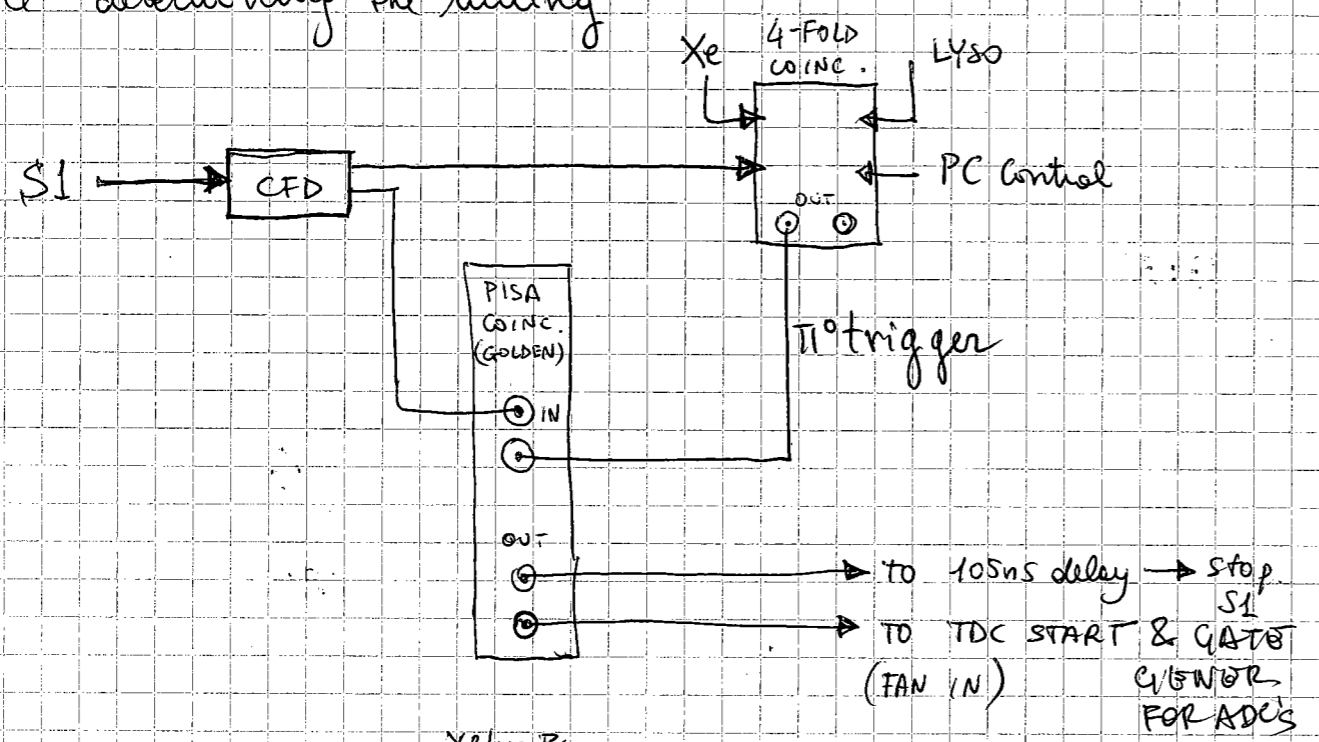 determining the timing
Xe
4-FOLD
COINC.
LYSO
S1
CFD
PC Control
OUT
PISA
COINC.
(GOLDEN)
π° trigger
IN
OUT
TO 105ns delay → Stop
S1
TO TDC START & GATE
(FAN IN)
GENER.
FOR ADC's